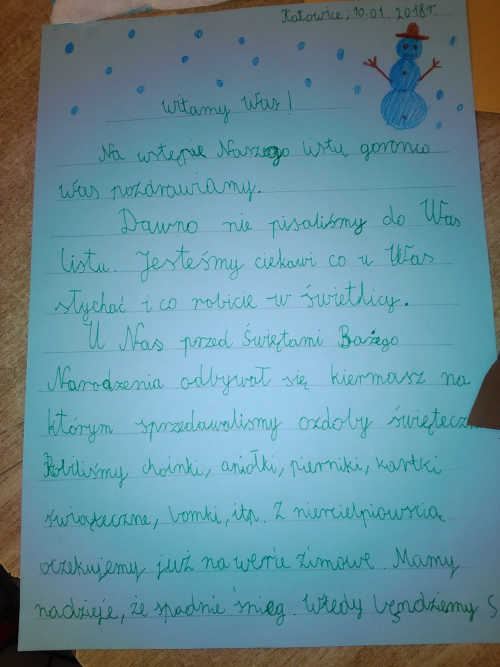 Katowice, 10.01.2018r.
Witamy Was!
Na wstępie Naszego listu goronco
Was pozdrawiamy.
Dawno nie pisaliśmy do Was
listu. Jesteśmy ciekawi co u Was
słychać i co robicie w świetlicy.
U Nas przed Świętami Bożego
Narodzenia odbywał się kiermasz na
którym sprzedawaliśmy ozdoby świętecz
Robiliśmy choinki, aniołki, pierniki, kartki
świąteczne, bomki, itp. Z niercielpiowscią
oczekujemy już na werie zimowe. Mamy
nadzieje, że spadnie śnieg. Wtedy będziemy S